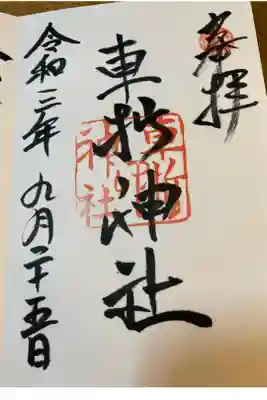 奉拝
車折神社
車折
神社
令和三年九月二十五日